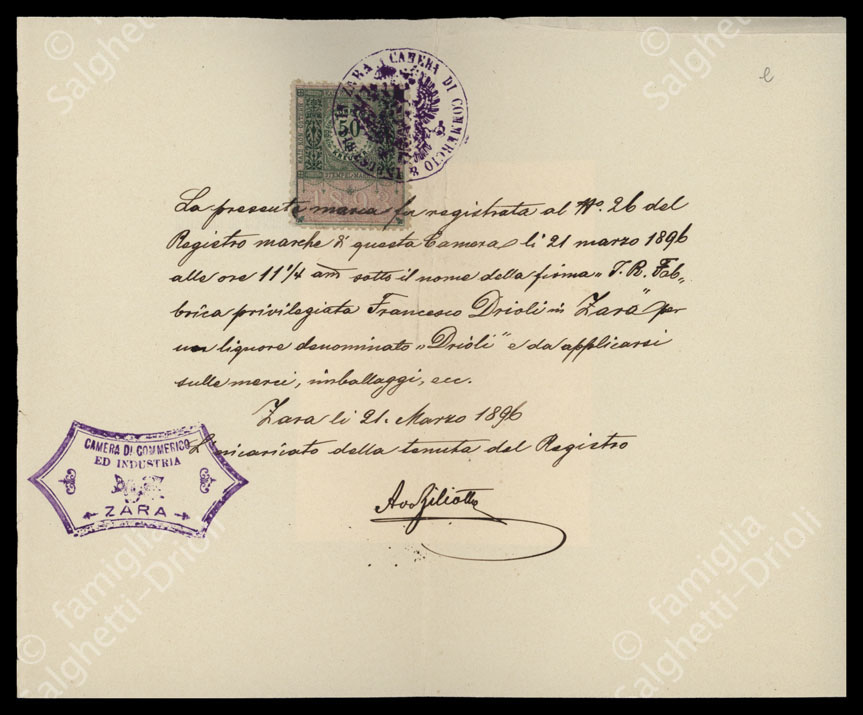 © famiglia Salghetti-Drioli
e
CAMERA DI COMMERCIO
ZARA
50
1893
La presente marca fu registrata al No. 26 del
Registro marche di questa Camera li 21 marzo 1896
alle ore 11 1/4 am sotto il nome della firma „I. R. Fab„
brica privilegiata Francesco Drioli in Zara" per
un liquore denominato „Drioli" e da applicarsi
sulle merci, imballaggi, ecc.
Zara li 21. Marzo 1896
L'incaricato della tenuta del Registro
CAMERA DI COMMERICO
ED INDUSTRIA
ZARA
© famiglia Salghetti-Drioli
© famiglia Salghetti-Drioli